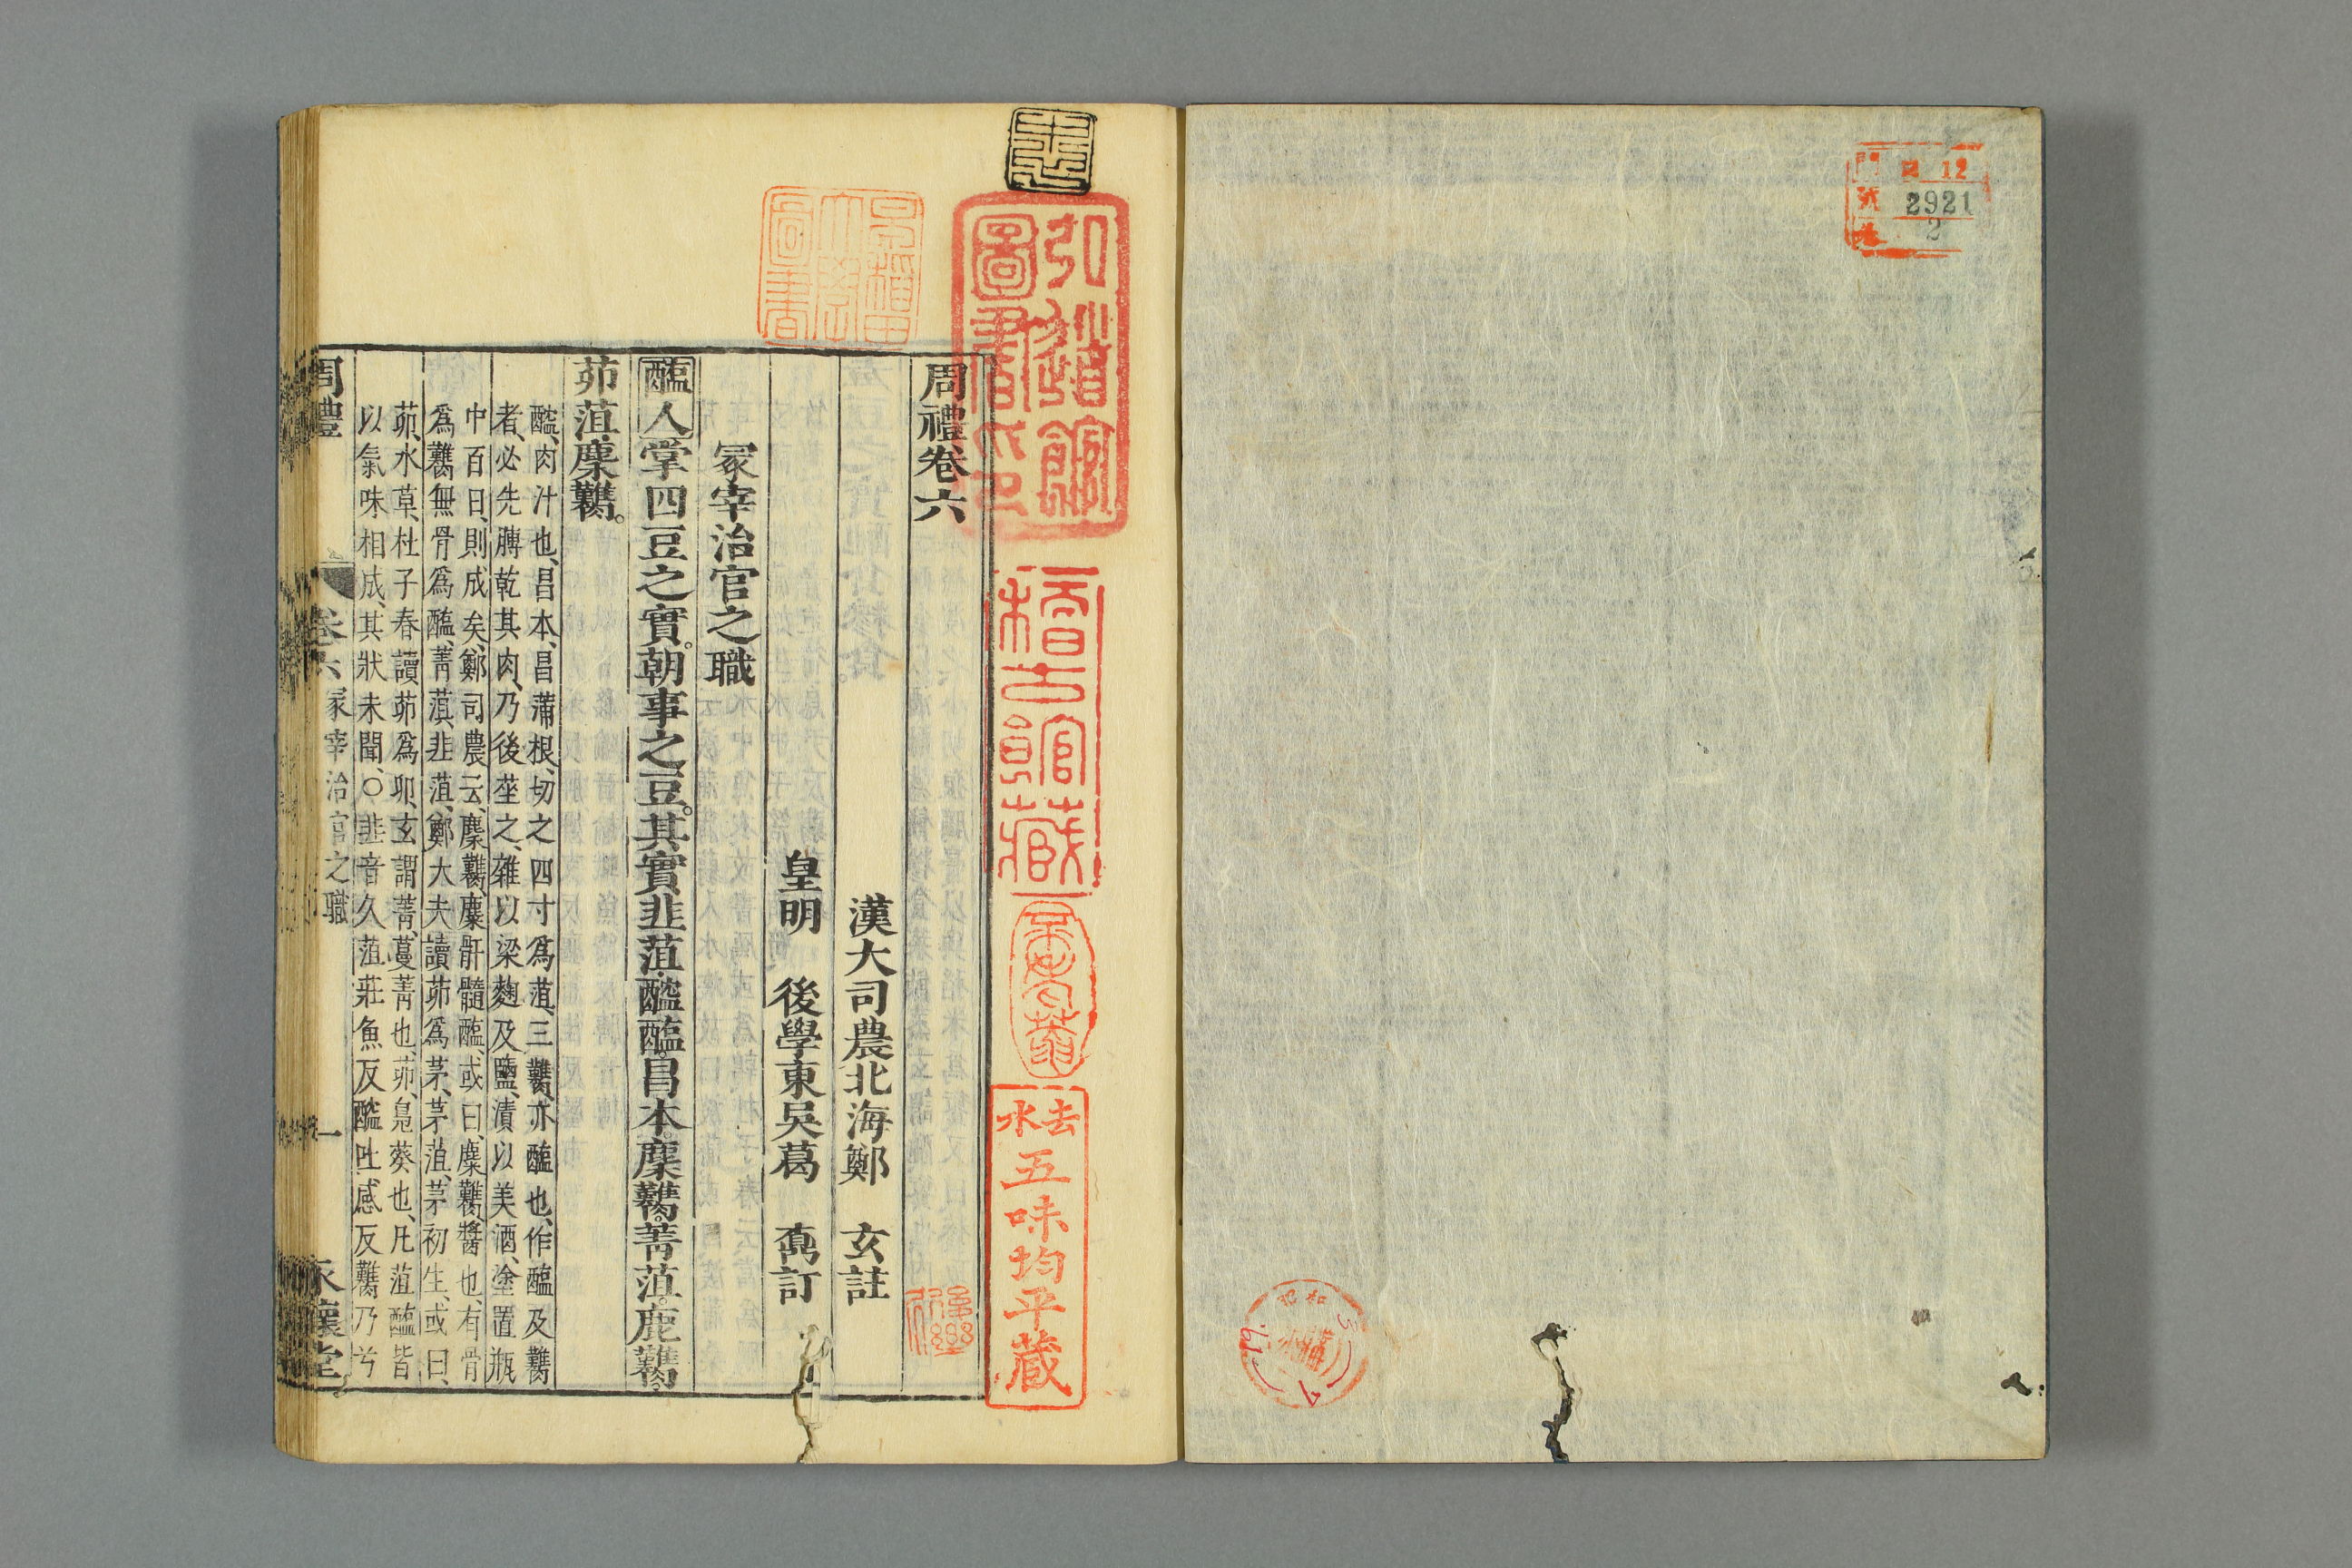 口 12
號 2921
2
弘道館
圖書印
稽古館藏
去水
五味均平蔵
早稲田
大學
圖書
周禮卷六
漢大司農北海鄭　玄註
皇明　後學東吳葛　鼒訂
冢宰治官之職
醢人掌四豆之實。朝事之豆。其實韭菹醓醢。昌本麋臡。菁菹。鹿臡。
茆菹麋臡。
醓、肉汁也、昌本、昌蒲根、切之四寸爲菹、三臡亦醢也、作醢及臡
者、必先膊乾其肉、乃後莝之、雜以梁麴及鹽、漬以美酒、塗置瓶
中百日、則成矣、鄭司農云、麋臡、麋骭髓醢、或曰、麋臡醬也、有骨
爲臡、無骨爲醢、菁菹、韭菹、鄭大夫讀茆爲茅、茅菹、茅初生、或曰、
茆、水草、杜子春讀茆爲卯、玄謂菁、蔓菁也、茆、鳧葵也、凡菹醢皆
以氣味相成、其狀未聞、○韭音久菹莊魚反醓吐感反臡乃兮
周禮　卷六　冢宰治官之職　一　永懷堂